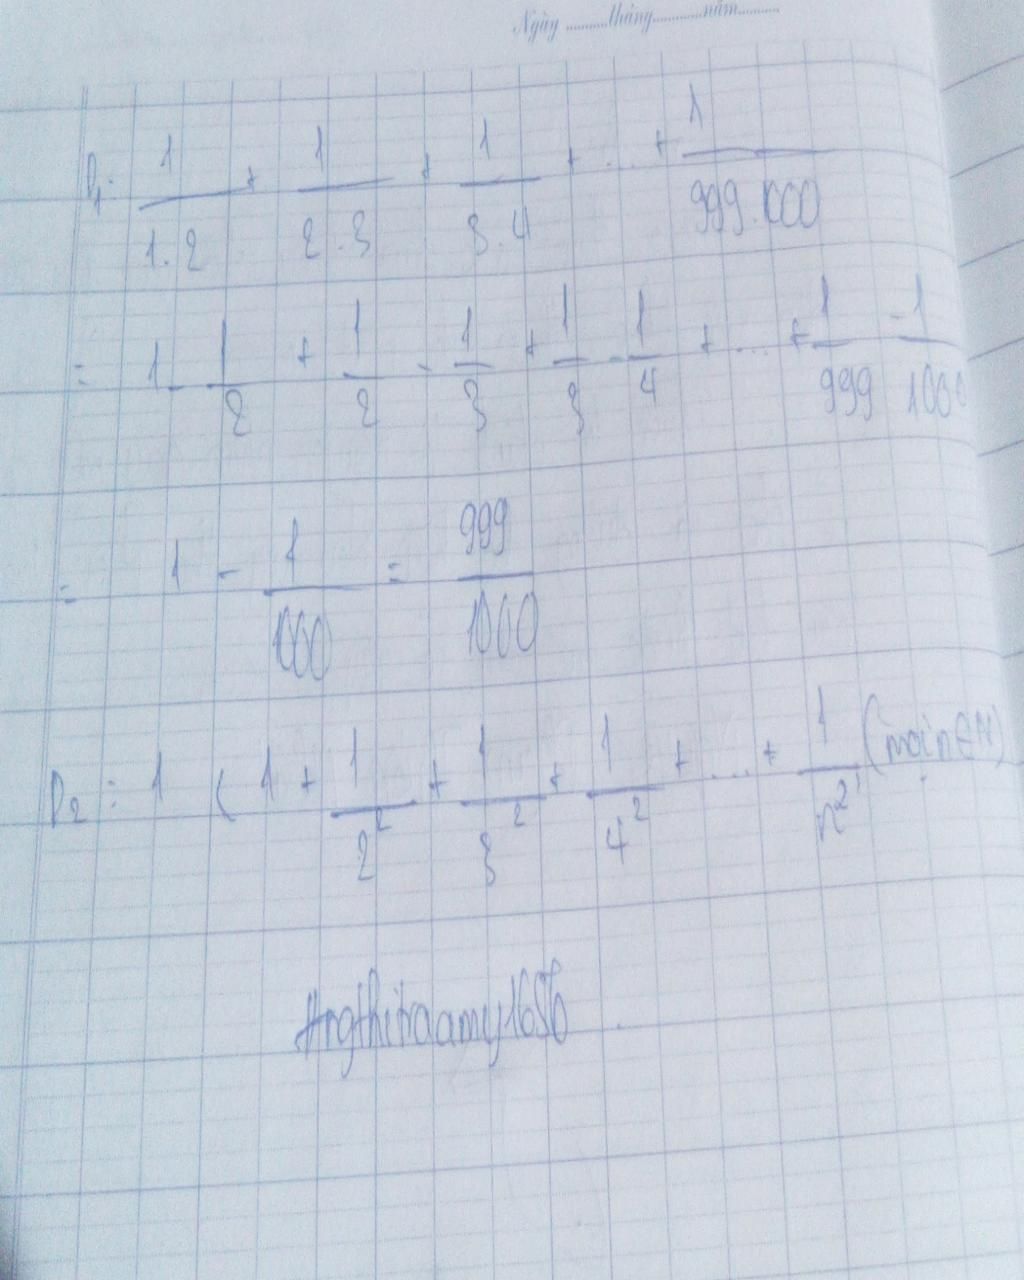 Ngày ..........tháng............năm..........
P₁: 1/1.2 + 1/2.3 + 1/3.4 + ... + 1/999.1000
= 1 - 1/2 + 1/2 - 1/3 + 1/3 - 1/4 + ... + 1/999 - 1/1000
= 1 - 1/1000 = 999/1000
P₂ : 1 < 1 + 1/2² + 1/3² + 1/4² + ... + 1/n² (mọi n ∈ N)